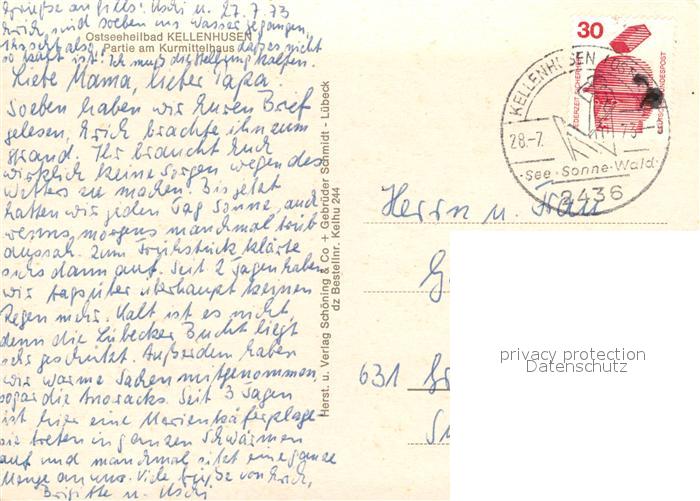 27.7.73
sind soeben ins Wasser gegangen,
Ostseeheilbad KELLENHUSEN
Partie am Kurmittelhaus
daß es nicht
so kalt ist. Ich muß die Heftung halten.
Liebe Mama, lieber Papa.
Soeben haben wir Euren Brief
gelesen, Erich brachte ihn zum
Strand. Ihr braucht Euch
wirklich keine Sorgen wegen des
Wetters zu machen. Bis jetzt
hatten wir jeden Tag Sonne, auch
wenns morgens manchmal trüb
aussah. Zum Frühstück klärte
sichs dann auf. Seit 2 Tagen haben
wir tagsüber überhaupt keinen
Regen mehr. Kalt ist es nicht,
denn die Lübecker Bucht liegt
sehr geschützt. Außerdem haben
wir warme Sachen mitgenommen,
sogar die Anoracks. Seit 3 Tagen
ist hier eine Marienkäferplage
sie treten in ganzen Schwärmen
auf und manchmal sitzt eine ganze
Menge an uns. Viele Grüße von Erich,
Brigitte u. Uschi
Herst. u. Verlag Schöning & Co + Gebrüder Schmidt - Lübeck
dz Bestellnr. Kelhu 244
30
JEDERZEIT SICHERHEIT
DEUTSCHE BUNDESPOST
KELLENHUSEN
28.-7.
73
See · Sonne · Wald
2436
Herrn u. Frau
G
631
privacy protection
Datenschutz